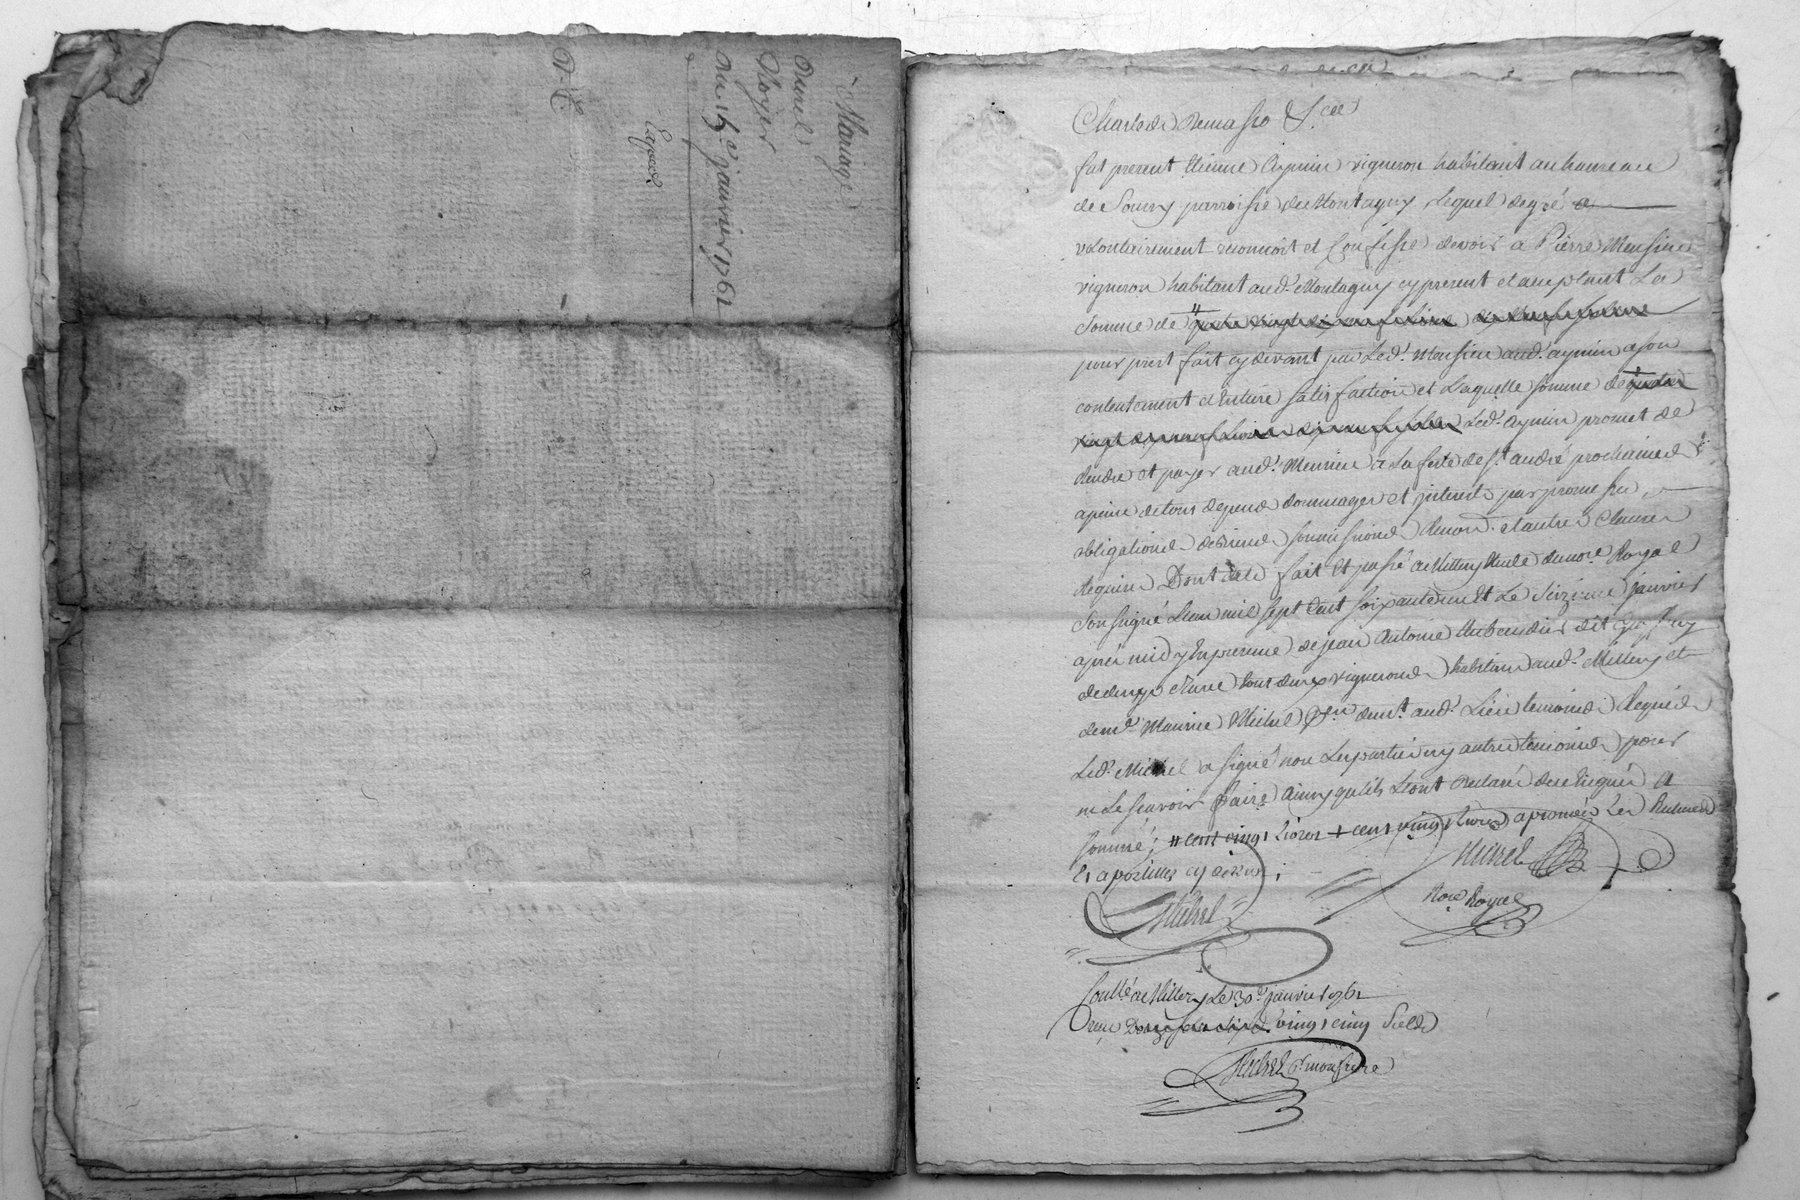 Mariage
Durel
Royer
Du 15e janvier 1762
Expedié
fut present Etienne Aymin vigneron habitant au hameau
de Sourzy parroisse de Montagny Lequel de gré &
volontairement reconnoit et Confesse devoir a Pierre Monsieu
vigneron habitant aud.t Montagny cy present et acceptant La
Somme de #
pour prest fait cy devant par Led.t Monsieu aud.t aymin a son
contentement et Entiere satisfaction et Laquelle somme de quatre
vingt dix neuf Livres dix neuf sols Led.t Aymin promet de
Rendre et payer aud.t Monsieu a La feste de S.t andré prochaine
a peine de tous depens dommages et interests par promesses
obligations de biens soumissions Renon.s et autres Clauses
Requises Dont acte fait et passé a Millery Etude du no.re Royal
Soussigné L'an mil sept Cent soixante un Et Le Seizieme janvier
apres midy En presence de jean Antoine
de tous deux vignerons habitans aud.t Millery et
de m.e Maurice Michel demt. aud.t Lieu temoins Requis
Led.t Michel a signé non Les parties ny autres temoins pour
ne Le sçavoir faire Ainsy qu'ils L'ont Declaré de ce Enquis &
sommé; # cent vingt Livres + cent vingt Livres approuvés Les Ratures
Et apostilles cy dessus;
Michel
Michel
No.re Royal
Conllé a Millery Le 30e janvier 1762
Reçu vingt cinq Sols
Michel